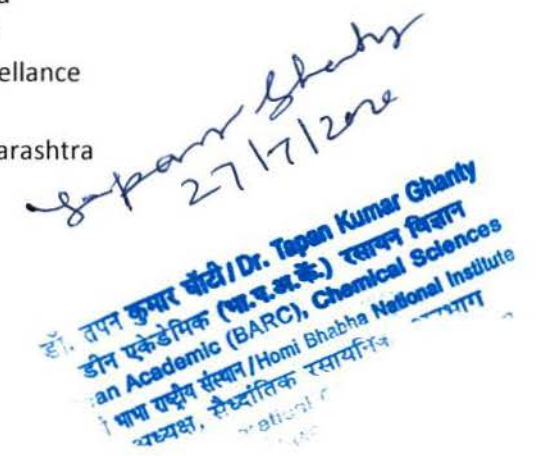 ellance
arashtra
Tapan Ghanty
27/7/2020
डॉ. तपन कुमार घाँटी/Dr. Tapan Kumar Ghanty
डीन एकेडेमिक (भा.प.अ.कें.) रसायन विज्ञान
an Academic (BARC), Chemical Sciences
भाभा राष्ट्रीय संस्थान/Homi Bhabha National Institute
अध्यक्ष, सैध्दांतिक